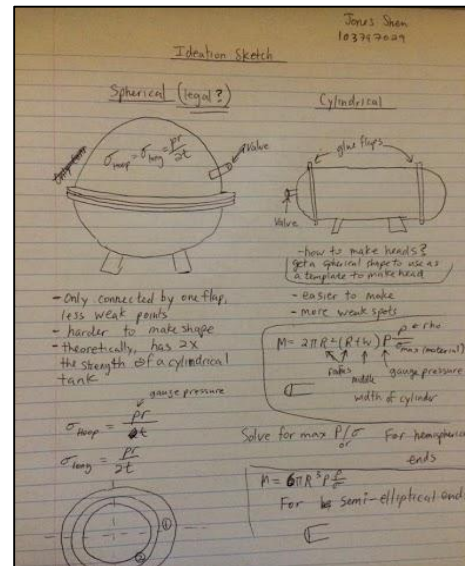 Jones Shen
103797029
Ideation Sketch
Spherical (legal?)
σHoop = σlong = pr/2t
Valve
- Only connected by one flap,
less weak points
- harder to make shape
- theoretically, has 2x
the strength of a cylindrical
tank
gauge pressure
σHoop = pr/2t
σlong = pr/2t
①
②
Cylindrical
glue flaps
Valve
- how to make heads?
get a spherical shape to use as
a template to make head
- easier to make
- more weak spots
M = 2πR²(R+W) P ρ/σmax (material)
ρ ← rho
radius
middle
gauge pressure
width of cylinder
Solve for max P/σ
or
For hemispherical
ends
M = 6πR³P ρ/σ
For semi-elliptical ends